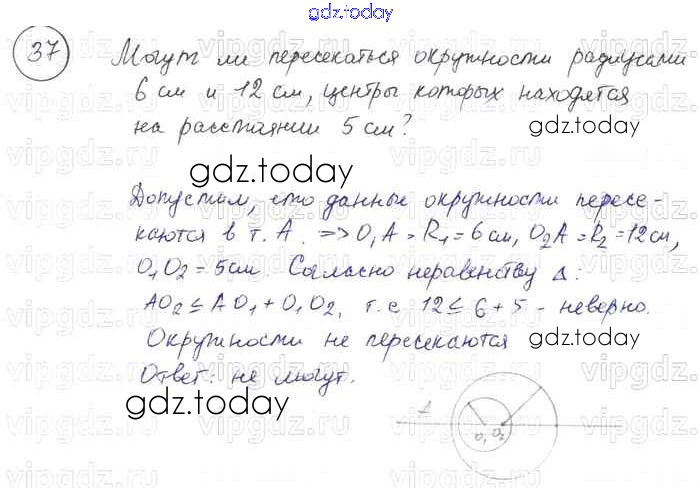 gdz.today
37
Могут ли пересекаться окружности радиусами
6 см и 12 см, центры которых находятся
на расстоянии 5 см?
gdz.today
gdz.today
Допустим, что данные окружности пересе-
каются в т. A. => O₁A = R₁ = 6 см, O₂A = R₂ = 12 см,
O₁O₂ = 5 см. Согласно неравенству Δ:
AO₂ ≤ AO₁ + O₁O₂, т.е 12 ≤ 6 + 5 - неверно.
Окружности не пересекаются
gdz.today
Ответ: не могут.
gdz.today
O₁ O₂
gdz.today